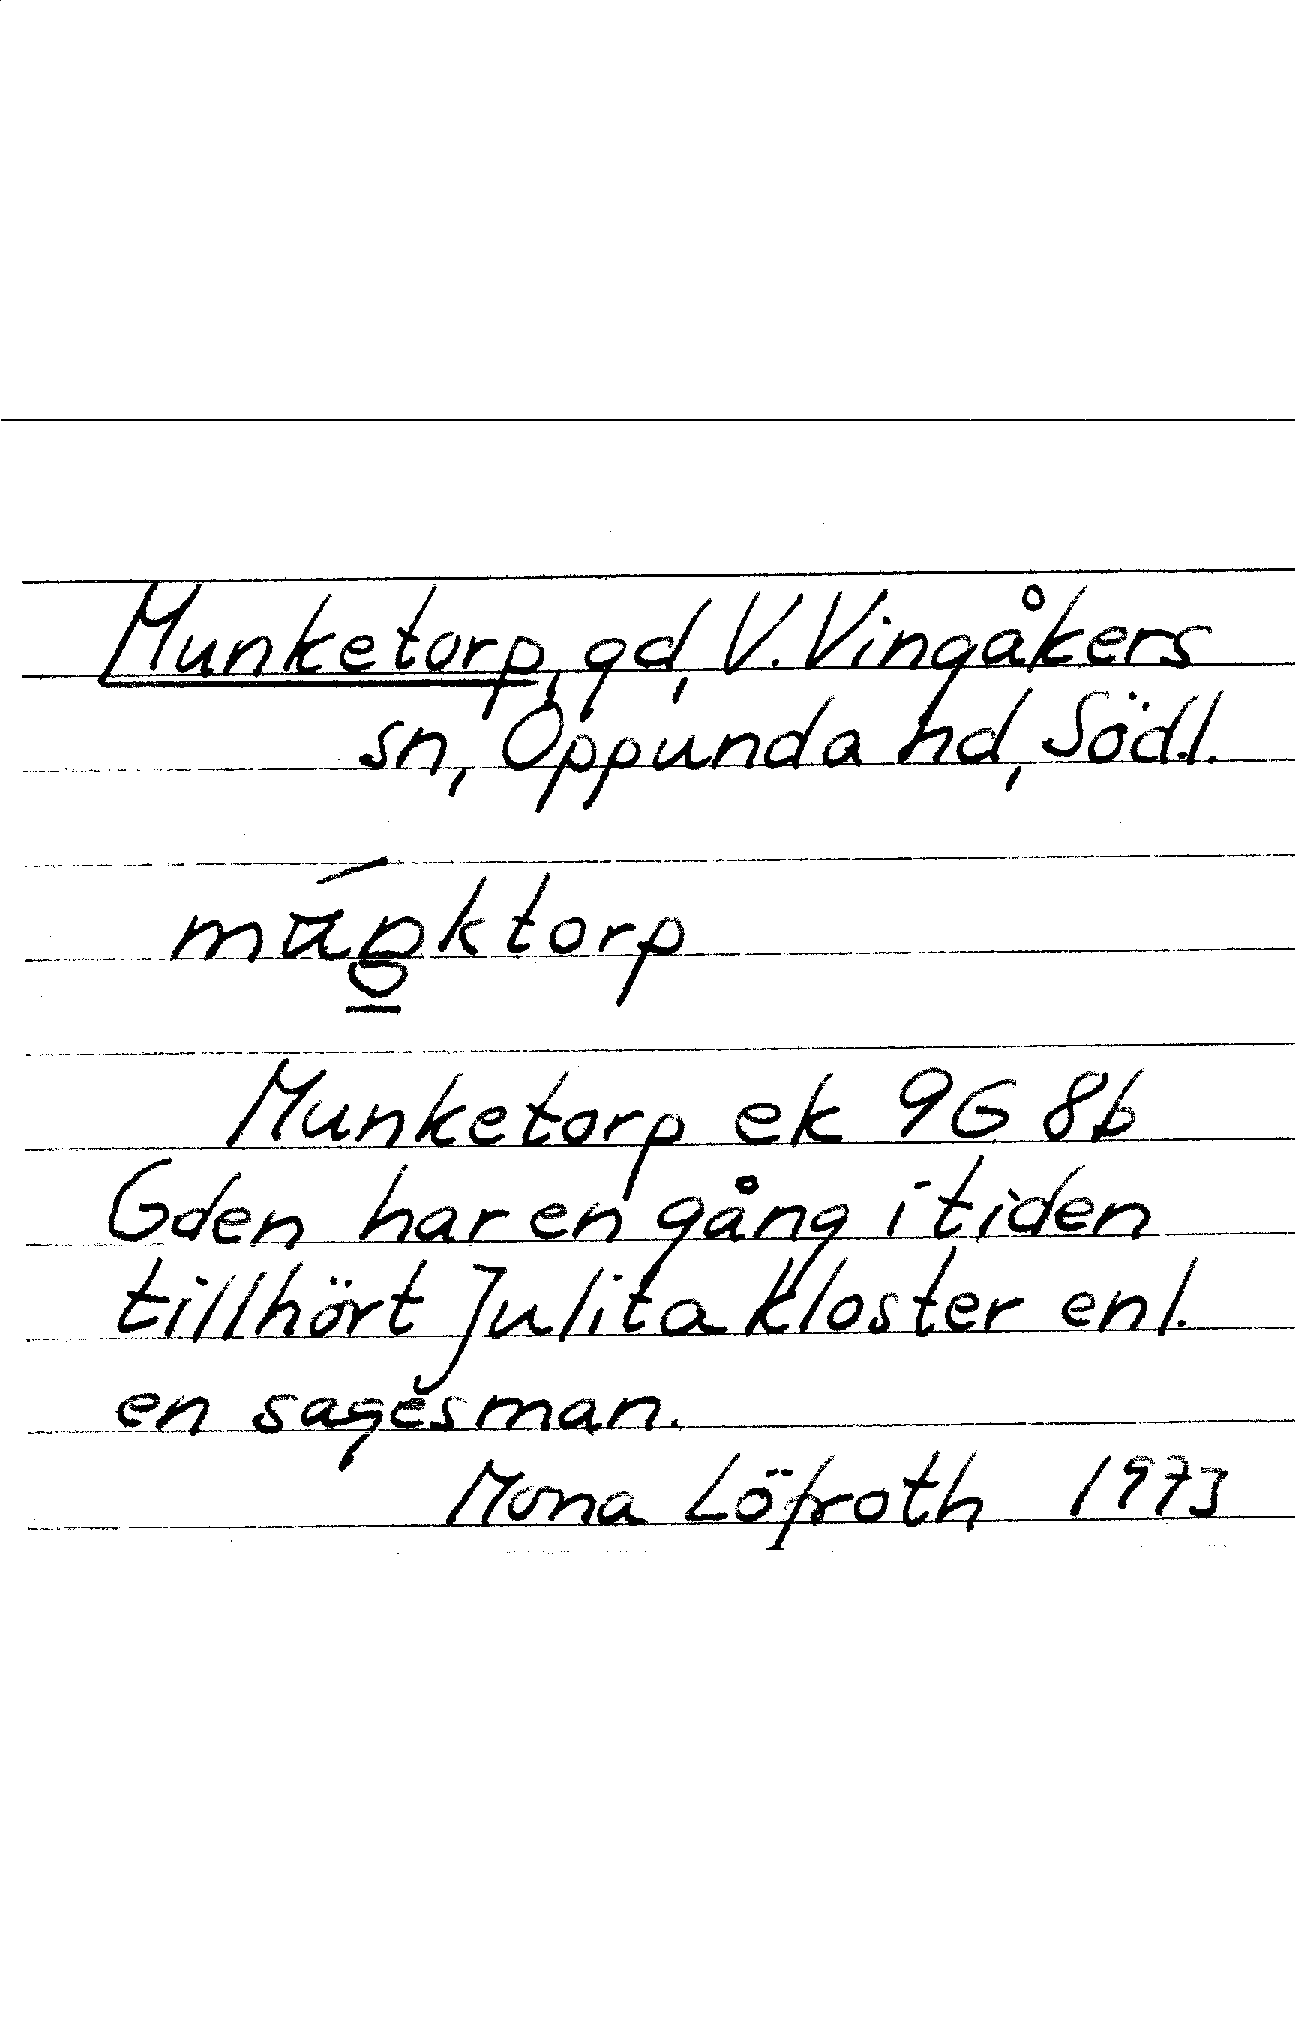 Munketorp, gd, V. Vingåkers
sn, Oppunda hd, Södl.
múŋktorp
Munketorp ek 9G 8b
Gden har en gång i tiden
tillhört Julita kloster enl.
en sagesman.
Mona Löfroth 1973